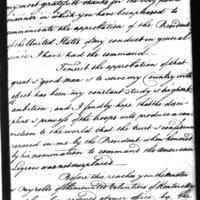 my most gratefull thanks for the very polite
manner in which you have been pleased to
communicate the approbation of the President
of the United States of my conduct in general
since I have had the command.—
To merit the approbation of that
great & good man & to serve my Country with
effect has been my constant study & highest
ambition, and I fondly hope that the
prowess of the troops will produce a con-
viction to the world that the trust & confidence
reposed in me by the President, when
by his nomination to command the American
Legion was not misplaced.—
Before this reaches you the muster
& pay rolls of the mounted Volunteers of Kentucky